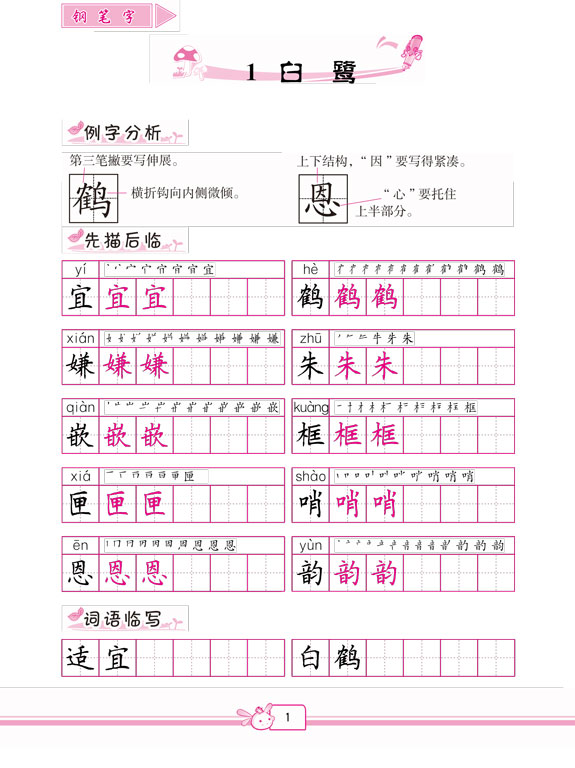 钢笔字
1 白鹭
例字分析
第三笔撇要写伸展。
鹤
横折钩向内侧微倾。
上下结构，“因”要写得紧凑。
恩
“心”要托住
上半部分。
先描后临
yí
宜 宜 宜
hè
鹤 鹤 鹤
xián
嫌 嫌 嫌
zhū
朱 朱 朱
qiàn
嵌 嵌 嵌
kuàng
框 框 框
xiá
匣 匣 匣
shào
哨 哨 哨
ēn
恩 恩 恩
yùn
韵 韵 韵
词语临写
适宜
白鹤
1